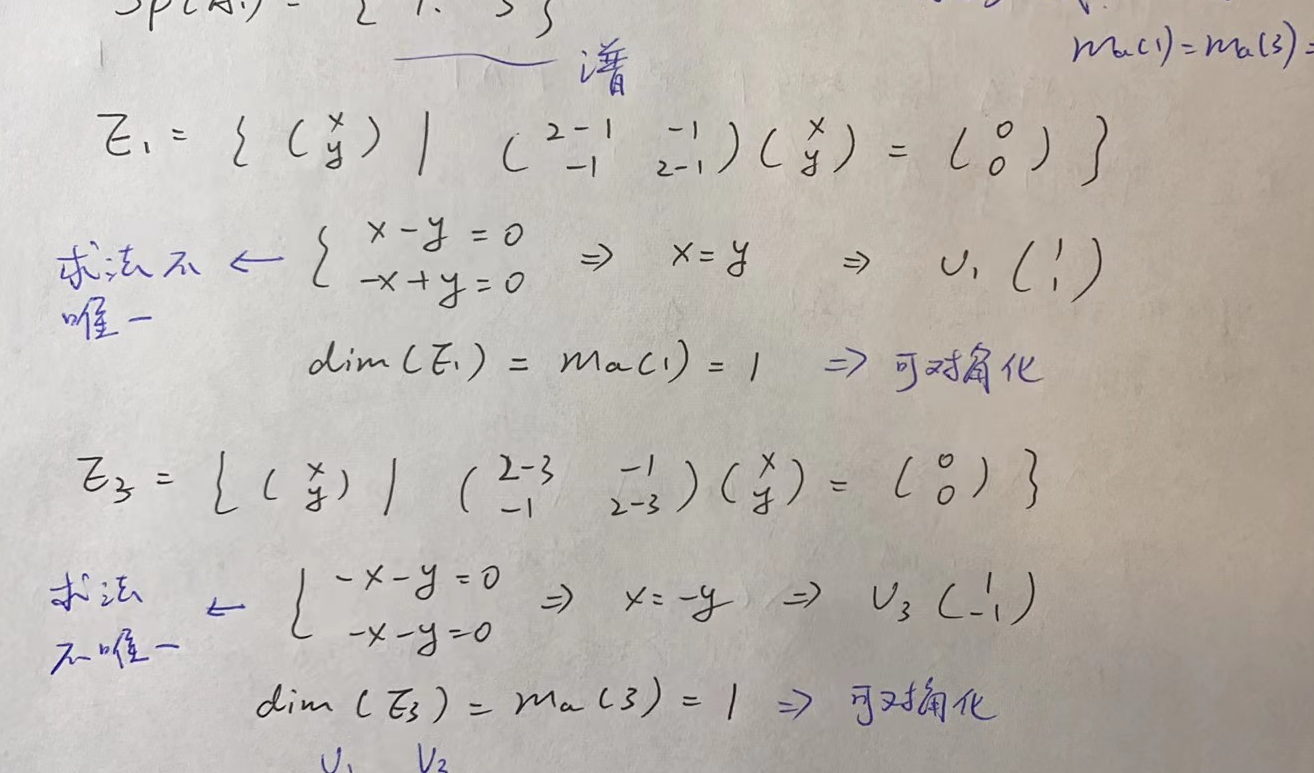 Sp(A₁) = { 1. 3 }
谱
ma(1) = ma(3) =
E₁ = { (x y) | (2-1 -1 -1 2-1) (x y) = (0 0) }
求法不唯一 ← { x - y = 0 -x + y = 0 ⇒ x = y ⇒ U₁ (1 1)
dim (E₁) = ma(1) = 1 ⇒ 可对角化
E₃ = { (x y) | (2-3 -1 -1 2-3) (x y) = (0 0) }
求法不唯一 ← { -x - y = 0 -x - y = 0 ⇒ x = -y ⇒ U₃ (1 -1)
dim (E₃) = ma(3) = 1 ⇒ 可对角化
U₁ U₂